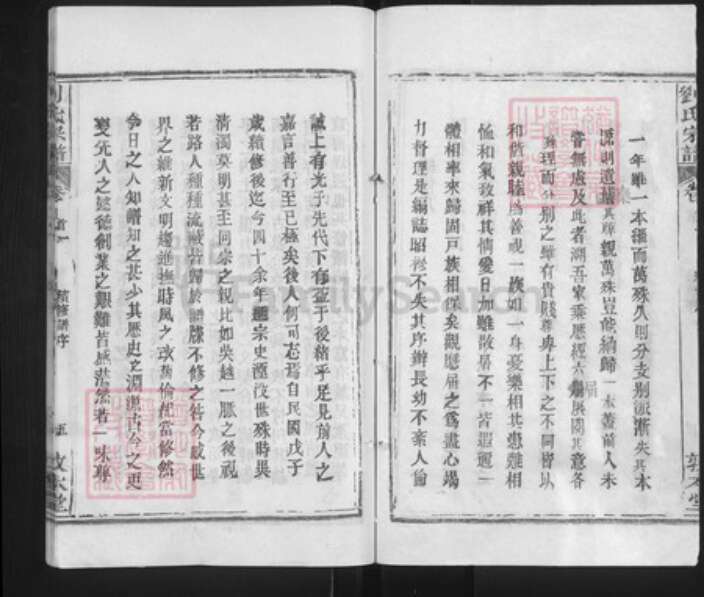 劉氏宗譜 卷
一年雖一本溯而萬殊久則分支別派漸失其本
源則遺
親萬殊豈能納歸一本蓋前人未
嘗無慮及此者溯吾家乘歷經六屆展閱其意各
殊理而分別之雖有貴賤尊卑上下之不同皆以
和宜親睦為善視一族如一身憂樂相共患難相
恤和氣致祥其情愛日加雖散居不一皆遐邇一
體相率來歸固戶族相保矣觀歷屆之為盡心竭
力督理是編誌昭穆不失其序辨長幼不紊人倫
敦本堂
誠上有光于先代下有益于後裔乎足見前人之
嘉言善行至已極矣後人何可忘焉自民國戊子
歲續修後迄今四十余年歷宗史湮沒世殊時異
清濁莫明甚至同宗之親比如吳越一脈之後視
若路人種種流
皆歸於譜牒不修之咎今
世
界之維新文明
進撫時風之
倫紀當修然
今日之人知譜知之甚少其歷史之淵源古今之更
變先人之
德創業之艱難皆感茫然若一味尊
劉氏宗譜 卷首
續修譜序
五
敦本堂
FamilySearch